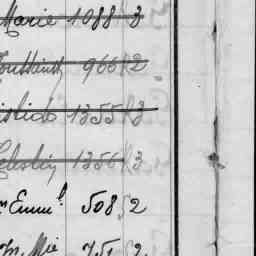 Marie 1088 3
Toussaint 966 2
1355 3
Celestin 1356 3
Emm.l 508 2
Mie 751 2